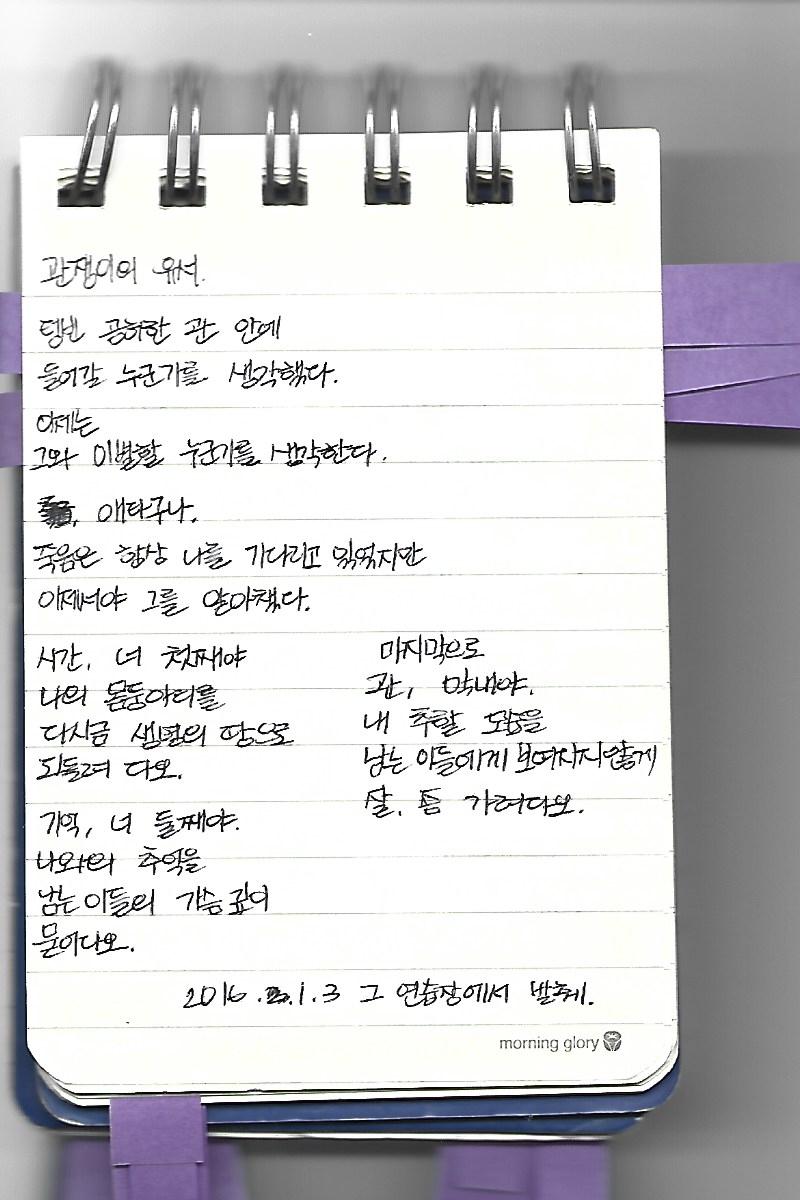 관쟁이의 유서.
텅빈 공허한 관 안에
들어갈 누군가를 생각했다.
이제는
그와 이별할 누군가를 생각한다.
애타구나.
죽음은 항상 나를 기다리고 있었지만
이제서야 그를 알아챘다.
시간, 너 첫째야
나의 몸둥아리를
다시금 생명의 땅으로
되돌려 다오.
기억, 너 둘째야.
나와의 추억을
남는 이들의 가슴 깊이
묻어다오.
마지막으로
관, 막내야.
내 추할 모습을
남는 이들에게 보여지지 않게
살. 좀 가려다오.
2016 . 1 . 3 그 연습장에서 발췌.
morning glory